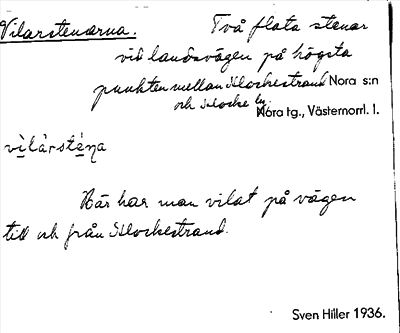 Vilarstenarna. Två flata stenar
vid landsvägen på högsta
punkten mellan Klockestrand Nora s:n
och Klocke by. Nora tg., Västernorrl. l.
vìlàrsténa
Här har man vilat på vägen
till och från Klockestrand.
Sven Hiller 1936.